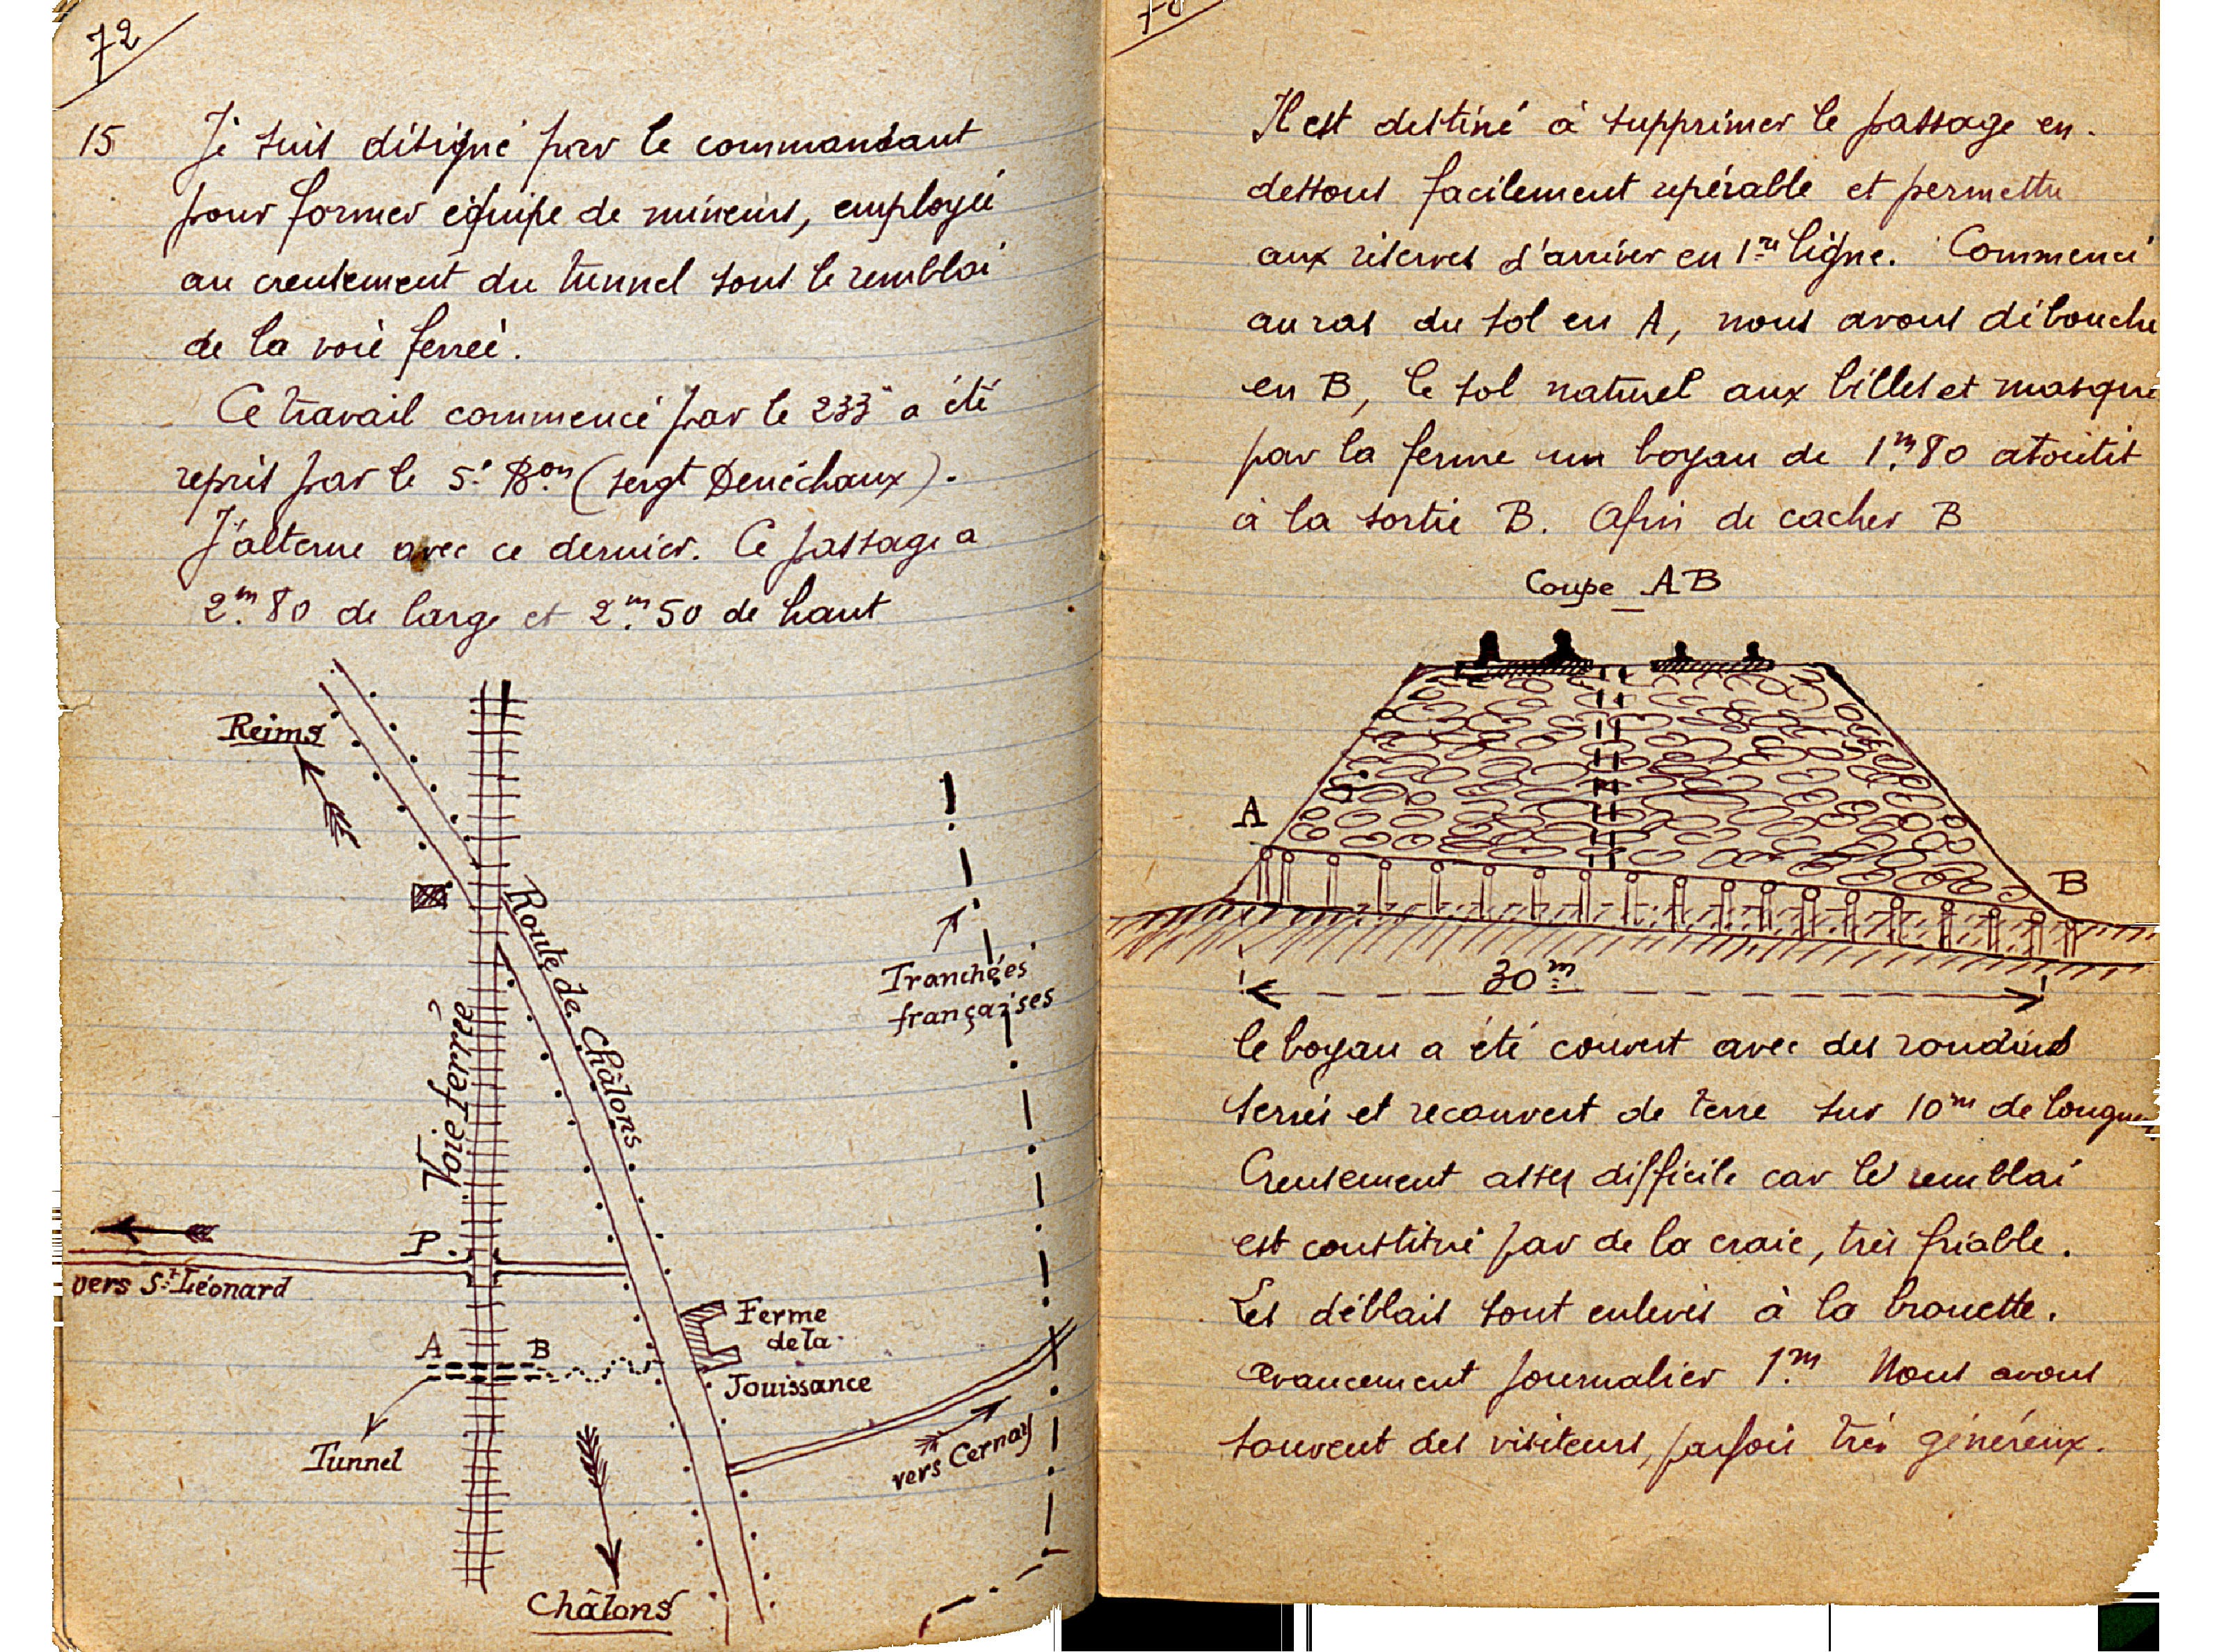 72
15 Je suis désigné par le commandant
pour former équipe de mineurs, employée
au creusement du tunnel sous le remblai
de la voie ferrée.
Ce travail commencé par le 233e a été
repris par le 5e Bon (sergt Denéchaux).
J'alterne avec ce dernier. Ce passage a
2m.80 de large et 2m.50 de haut
Reims
Route de Châlons
Voie ferrée
Tranchées
françaises
P.
vers St Léonard
A B
Ferme
de la
Jouissance
Tunnel
vers Cernay
Châlons
Il est destiné à supprimer le passage en-
dessous facilement repérable et permettre
aux réserves d'arriver en 1re ligne. Commencé
au ras du sol en A, nous avons débouché
en B, le sol naturel aux billes et masqué
par la ferme un boyau de 1m.80 aboutit
à la sortie B. Afin de cacher B
Coupe _AB
A
B
30m
le boyau a été couvert avec des rondins
serrés et recouvert de terre sur 10m de longueur
Creusement assez difficile car le remblai
est constitué par de la craie, très friable.
Les déblais sont enlevés à la brouette.
avancement journalier 1m. Nous avons
souvent des visiteurs, parfois très généreux.